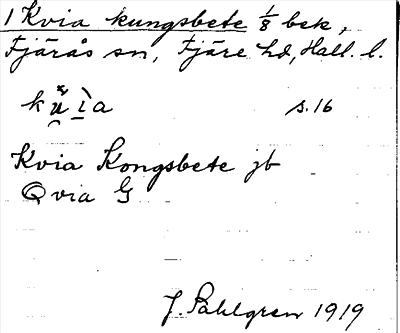 1 Kvia kungsbete 1/8 bek,
Fjärås sn, Fjäre hd, Hall. l.
s. 16
Kvia Kongsbete jb
Qvia G
J. Sahlgren 1919